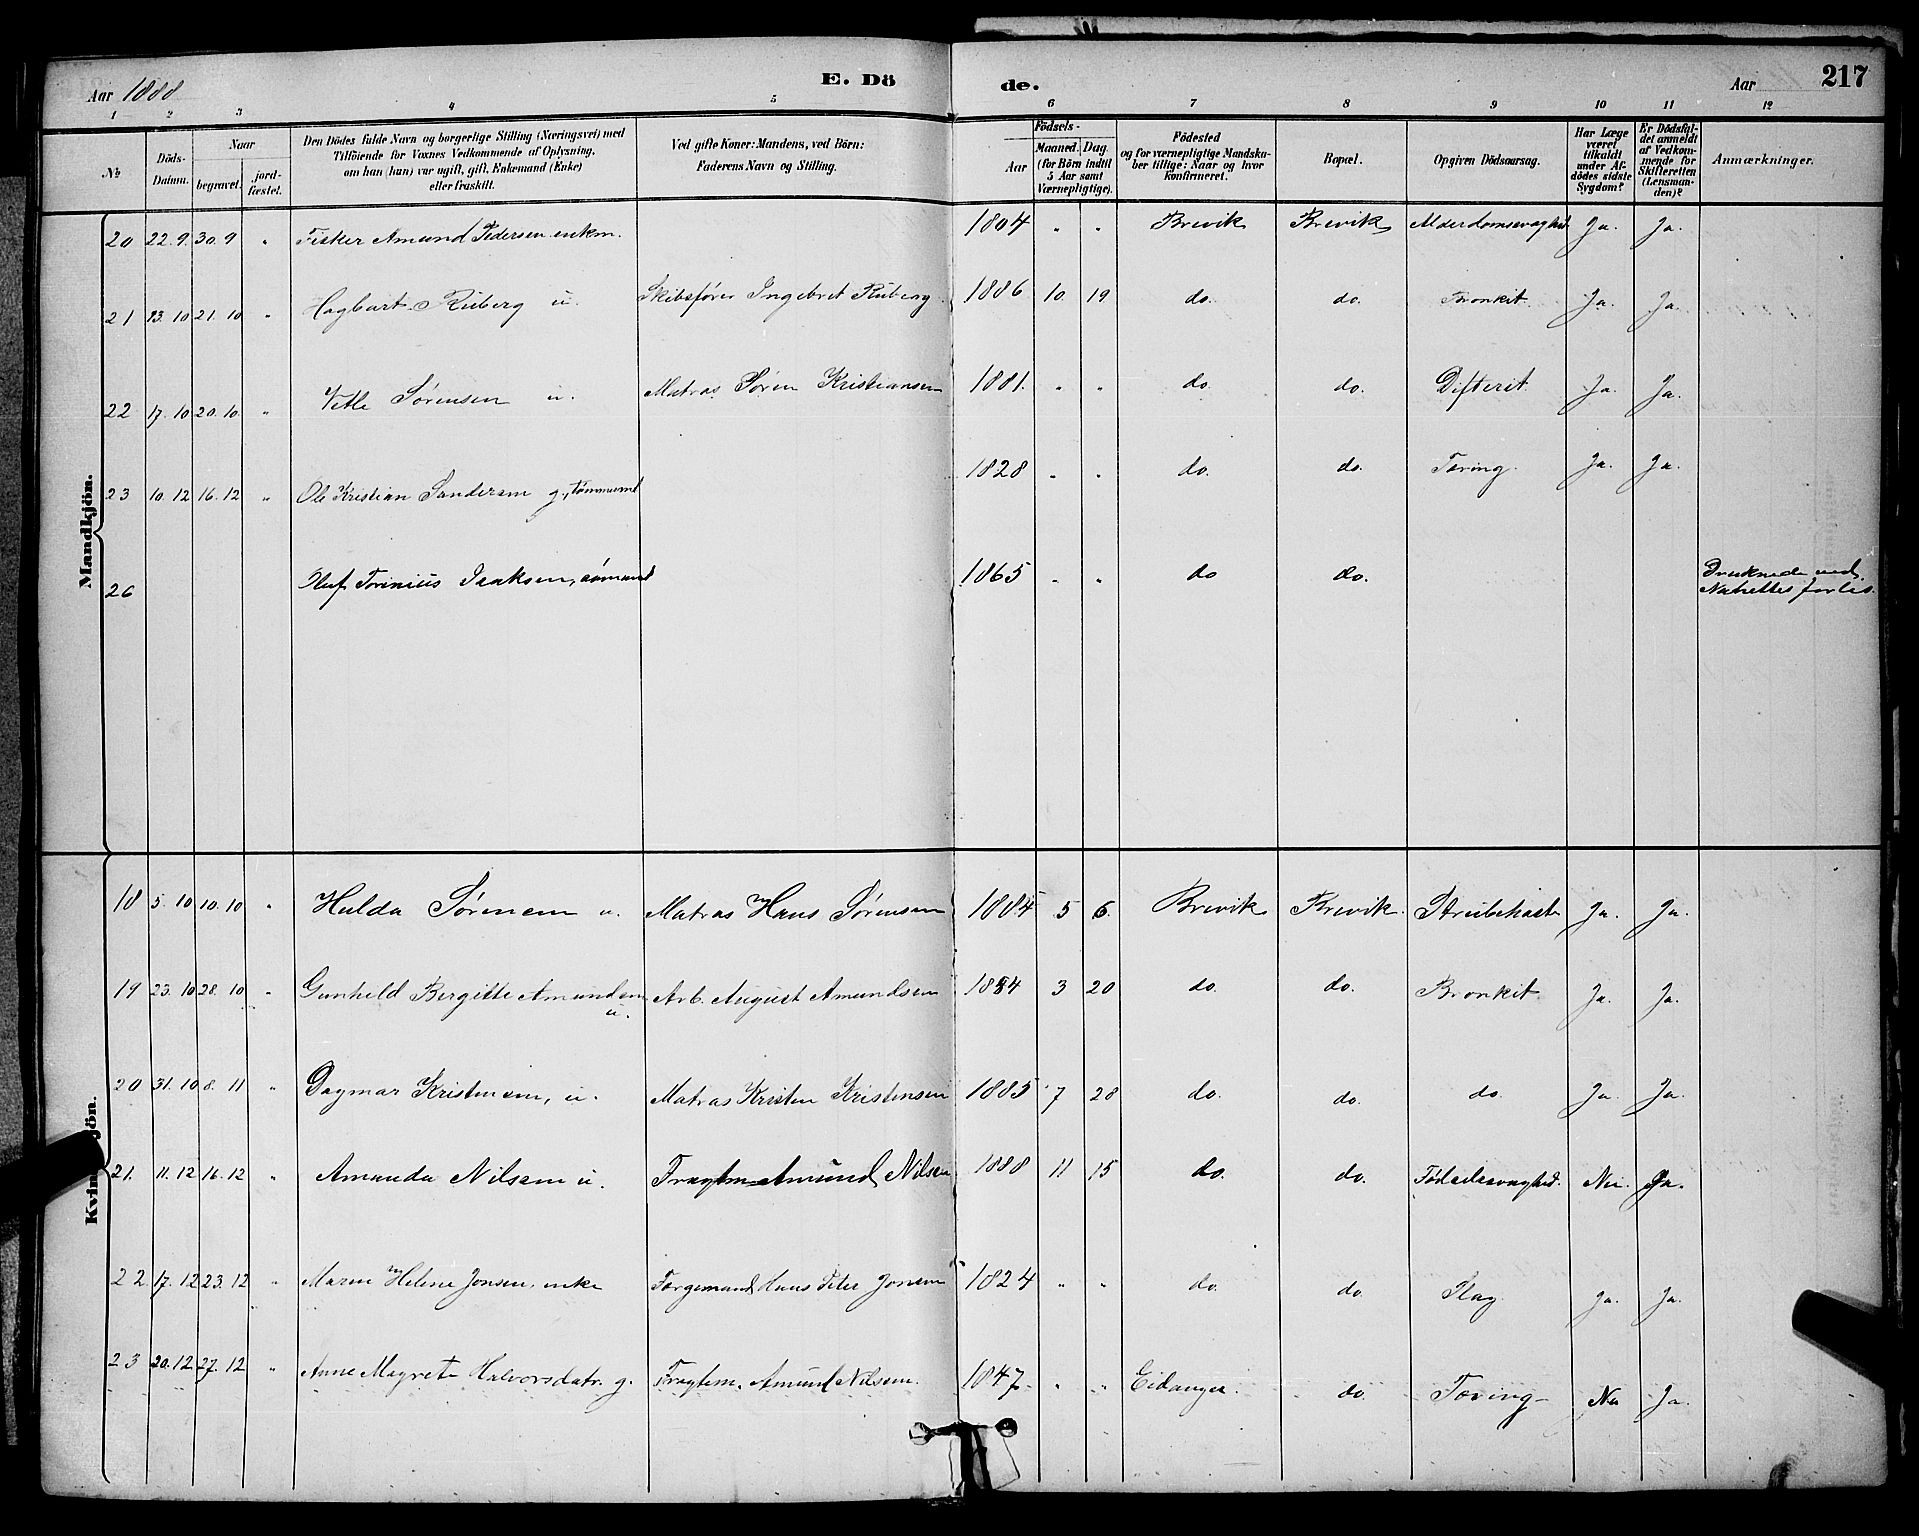 Aar 1888
E. Dö
de.
Aar
217
1 2 3 4 5 6 7 8 9 10 11 12
No
Döds-
Datum.
Naar
begravet.
jord-
fæstet.
Den Dödes fulde Navn og borgerlige Stilling (Næringsvei) med
Tilföiende for Voxnes Vedkommende af Oplysning,
om han (hun) var ugift, gift, Enkemand (Enke)
eller fraskilt.
Ved gifte Koner: Mandens, ved Börn:
Faderens Navn og Stilling.
Födsels-
Aar
Maaned. Dag.
(for Börn indtil
5 Aar samt
Værnepligtige).
Födested
og for værnepligtige Mandska-
ber tillige: Naar og hvor
Konfirmeret.
Bopæl.
Opgiven Dödsaarsag.
Har Læge
været
tilkaldt
under Af-
dödes sidste
Sygdom?
Er Dödsfal-
det anmeldt
af Vedkom-
mende for
Skifteretten
(Lensman-
den)?
Anmærkninger.
Mandkjön.
20 22.9. 30.9 " Fisker Amund Pedersen enkm. 1804 " " Brevik Brevik Alderdomssvaghed Ja. Ja.
21 13.10 21.10 " Hagbart Ruberg u. Skibsfører Ingebret Ruberg. 1886 10. 19 do. do. Bronkit. Ja. Ja.
22 17.10 20.10 " Vetle Sørensen u. Matros Søren Kristiansen 1881. " " do. do. Difterit. Ja. Ja.
23 10.12 16.12 " Ole Kristian Sandersen g., tømmermd 1828 " " do. do. Tæring. Ja. Ja.
26 Oluf Torinius Isaksen, sømand 1865 " " do do. Druknede ved
Nathettes forlis.
Kvindekjön.
18 5.10 10.10 " Hulda Sørensen u. Matros Hans Sørensen 1884 5 6. Brevik Brevik. Strubehoste Ja. Ja.
19 23.10 28.10 " Gunhild Bergitte Amundsen
u. Arb. August Amundsen 1884 3 20 do. do. Bronkit Ja. Ja.
20 31.10 8.11 " Dagmar Kristensen, u. Matros Kristen Kristensen 1885 7 28 do. do. do. Ja. Ja.
21. 11.12 16.12 " Amanda Nilsen u. Fragtm. Amund Nilsen 1888 11 15 do. do. Fødselssvaghed. Nei. Ja.
22 17.12 23.12 " Maren Helene Jonsen, enke Færgemand Hans Peter Jonsen 1824 " " do. do. Slag. Ja. Ja.
23 20.12 27.12 " Anne Magrete Halvorsdatr. g. Fragtem. Amund Nilsen. 1847. " " Eidanger. do. Tæring Nei Ja.